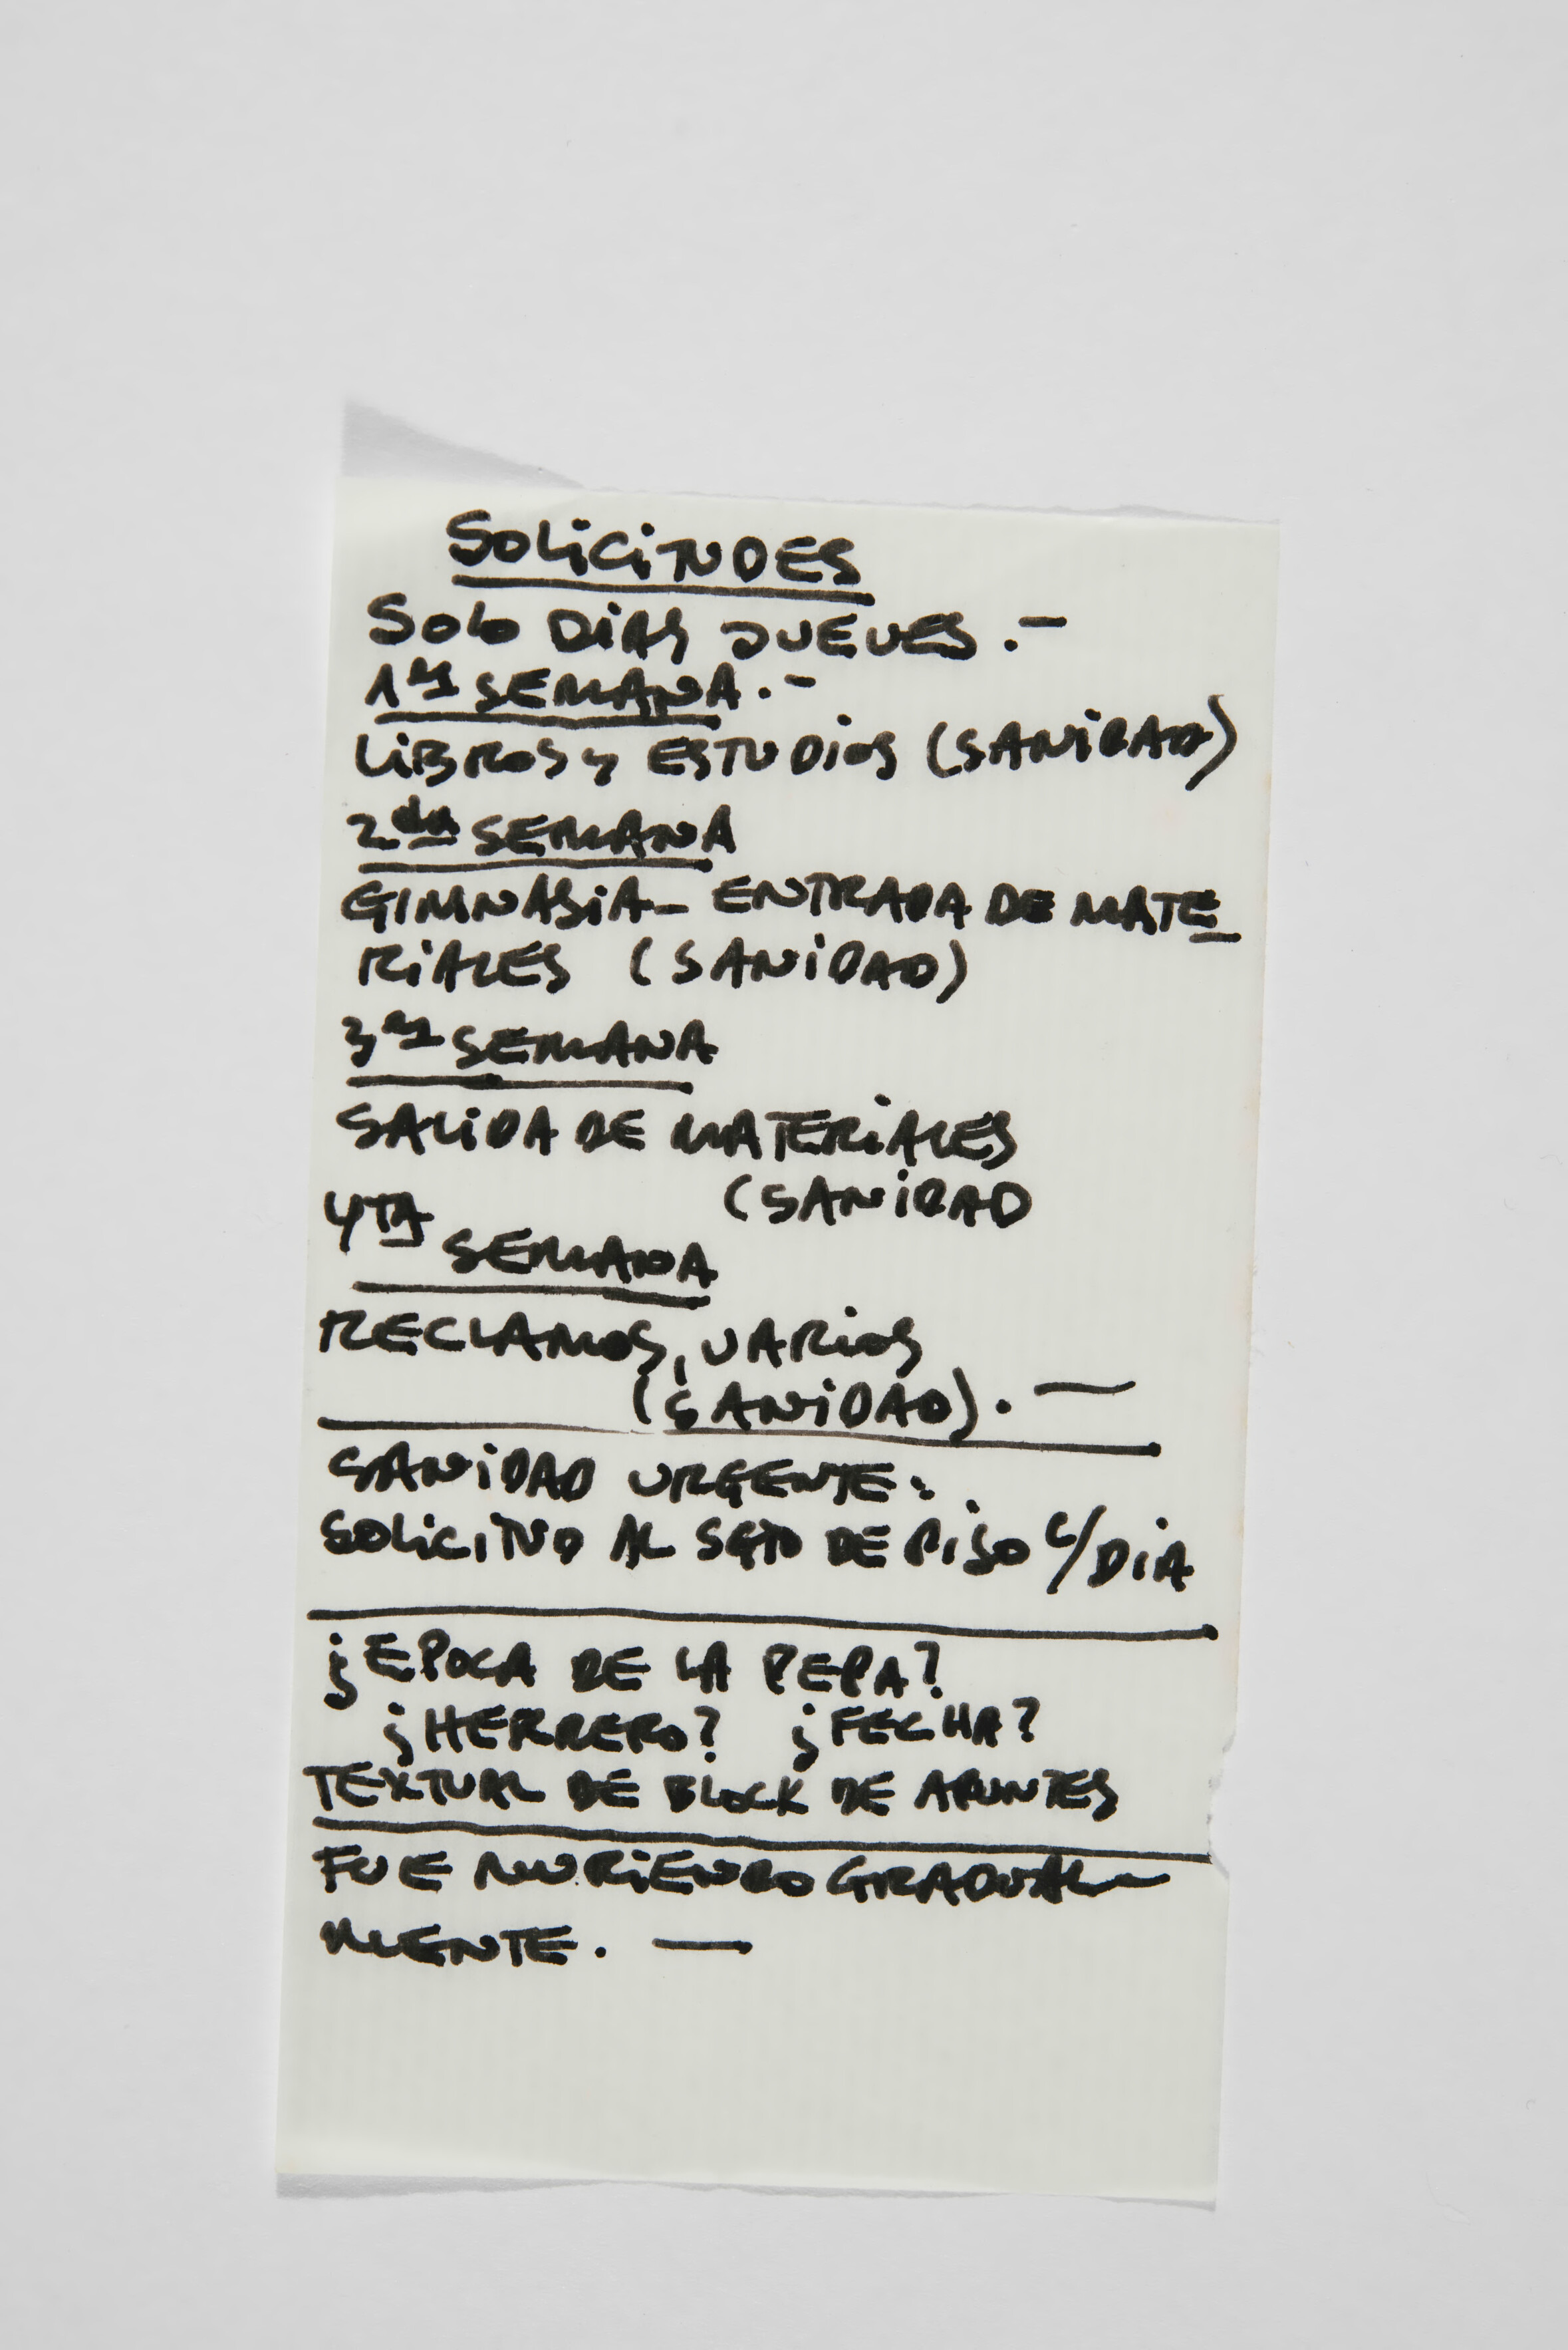 SOLICITUDES
SOLO DIAS JUEVES.-
1ra SEMANA.-
LIBROS y ESTUDIOS (SANIDAD)
2da SEMANA
GIMNASIA- ENTRADA DE MATE-
RIALES (SANIDAD)
3ra SEMANA
SALIDA DE MATERIALES
(SANIDAD
4TA
SEMANA
RECLAMOS, VARIOS
(SANIDAD). —
SANIDAD URGENTE:
SOLICITUD AL SGTO DE PISO C/DIA
¿EPOCA DE LA PEPA?
¿HERRERO? ¿FECHA?
TEXTUAL DE BLOCK DE APUNTES
FUE MURIENDO GRADUAL-
MENTE. —